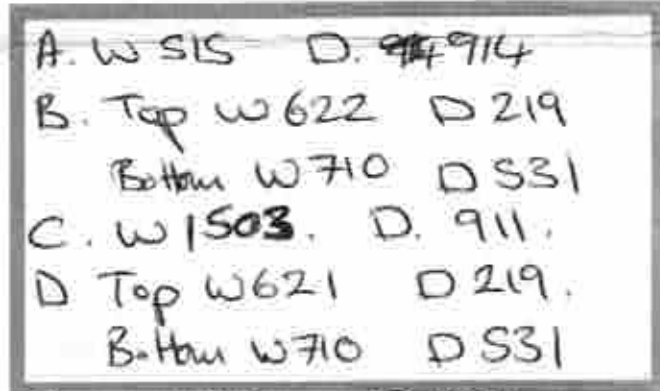 A. W 515 D. 914
B. Top W 622 D 219
Bottom W710 D 531
C. W 1503. D. 911.
D Top W621 D 219.
Bottom W710 D 531